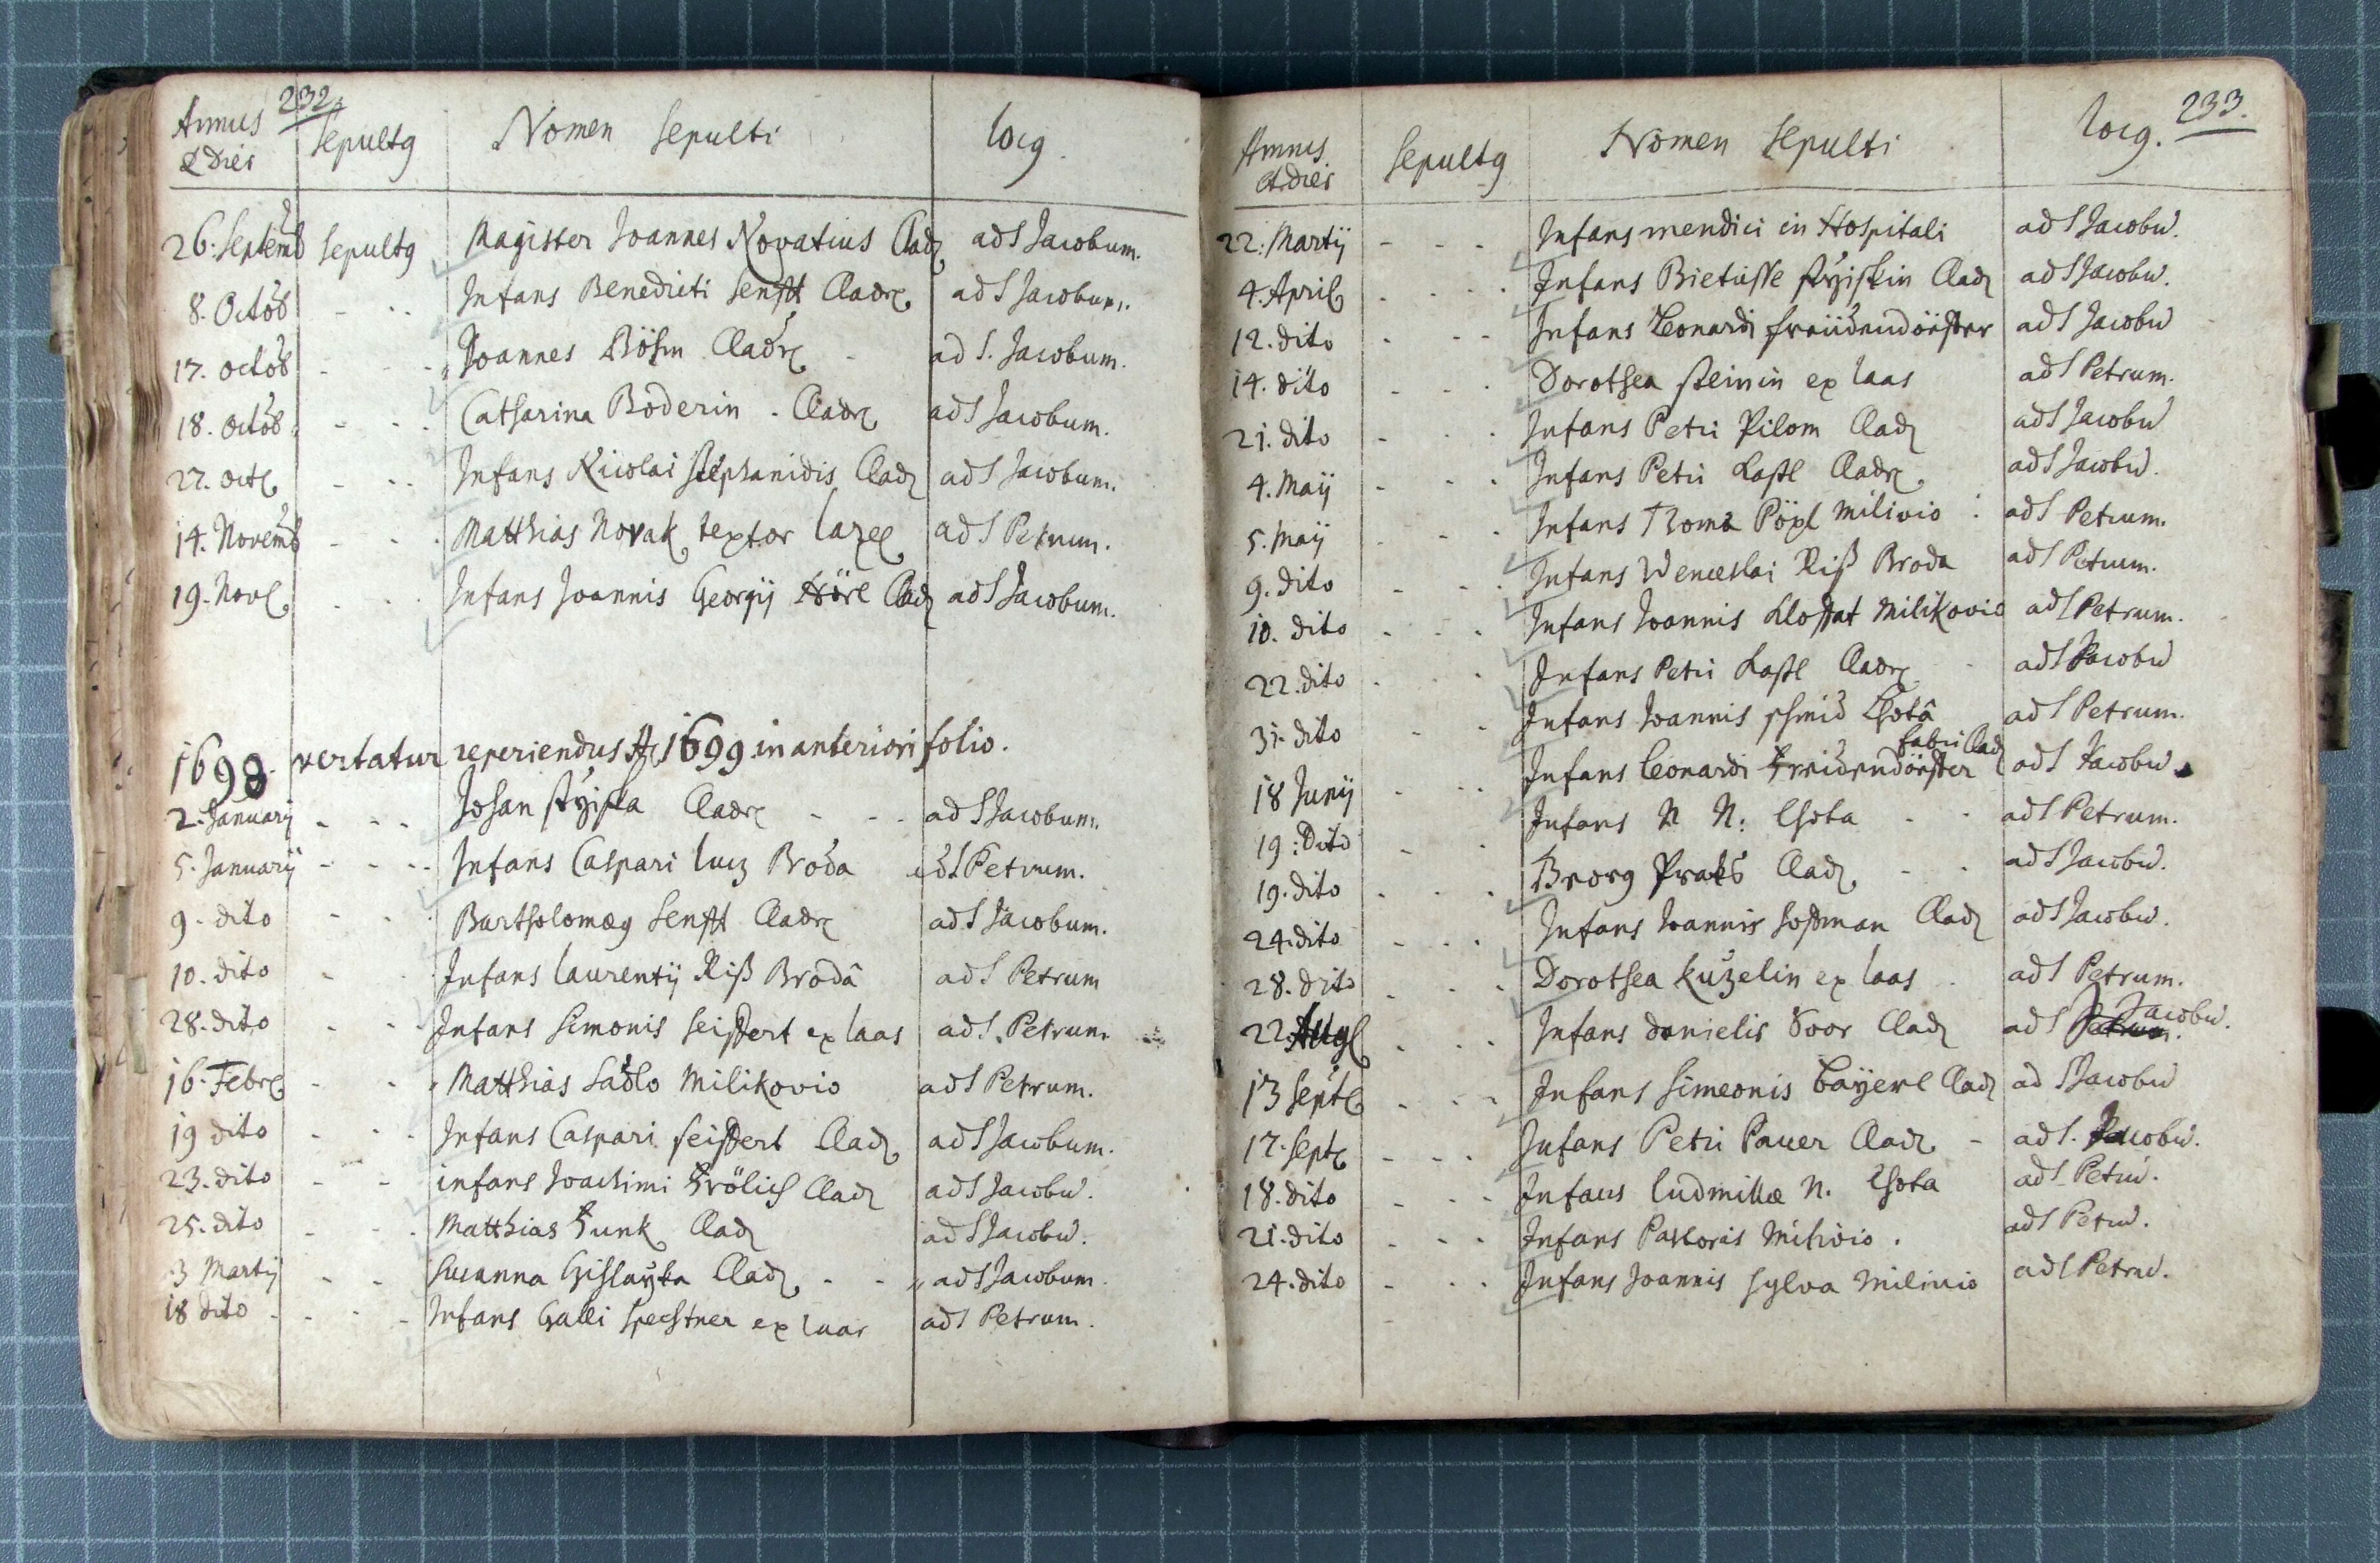 232.
Annus & Dies sepultg Nomen sepulti locg.
26. Septemb sepultg Magister Joannes Novatius Clad ad S Jacobum.
8. Octob - - - Infans Benedicti Senfft Cladr ad S Jacobum.
17. Octob - - - Joannes Böhm Cladr - ad S. Jacobum.
18. Octob - - - Catharina Boderin - Cladr ad S Jacobum.
27. Oct - - - Infans Nicolai Stephanidis Clad ad S Jacobum.
14. Novemb - - - Matthias Novak textor ad S Petrum.
19. Nov - - - Infans Joannis Georgij Hörl Clad ad S Jacobum.
1698. vertatur reperiendus A 1699 in anteriori folio.
2. Januarij - - - Johan Cladr - - - ad S Jacobum.
5. Januarij - - - Infans Caspari Broda ad S Petrum.
9. dito - - - Bartholomæg Senfft Cladr ad S Jacobum.
10. dito - - - Infans Laurentij Riß Broda ad S Petrum
28. dito - - - Infans Simonis Seiffert ex Laas ad S. Petrum
16. Febr - - - Matthias Sadlo Milikovio ad S Petrum.
19 dito - - - Infans Caspari Seiffert Clad ad S Jacobum.
23. dito - - infans Joachimi Frölich Clad ad S Jacobu.
25. dito - - - Matthias Funk Clad ad S Jacobu.
3 Martij - - Susanna Clad - - ad S Jacobum.
18 dito - - - Infans Galli Spechtner ex Laas ad S Petrum.
233.
Annus et dies sepultg Nomen sepulti locg.
22. Martij - - - Infans mendici in Hospitali ad S Jacobu.
4. April - - - Infans Clad ad S Jacobu.
12. dito - - - Infans Leonardi Freüdendörffer ad S Jacobu
14. dito - - - Dorothea Steinin ex Laas ad S Petrum.
21. dito - - - Infans Petri Pilom Clad ad S Jacobu
4. Maij - - - Infans Petri Kastl Cladr ad S Jacobu.
5. Maij - - - Infans Thomæ Pöpl Milivio ad S Petrum.
9. dito - - - Infans Wenceslai Riß Broda ad S Petrum.
10. dito - - - Infans Joannis Milikovio ad S Petrum.
22. dito - - - Infans Petri Kastl Cladr ad S Jacobu
31. dito - - - Infans Joannis Lhota ad S Petrum.
18 Junij - - - Infans Leonardi Freidendörffer fabri Clad ad S Jacobu
19. Dito - - Infans N N. Lhota - - ad S Petrum.
19. dito - - - Georg Clad - - ad S Jacobu.
24. dito - - - Infans Joannis Hoffman Clad ad S Jacobu.
28. dito - - - Dorothea Kuzelin ex Laas - ad S Petrum.
22 Aug - - - Infans Danielis Clad ad S Petrum. Jacobu.
13 Sept - - - Infans Simeonis Bayerl Clad ad S Jacobu
17. Sept - - - Infans Petri Pauer Clad - ad S. Jacobu.
18. dito - - - Infans Ludmillæ N. Lhota ad S Petru.
21. dito - - - Infans Pastoris Milivio. ad S Petru.
24. dito - - - Infans Joannis Sylva Milivio ad S Petru.